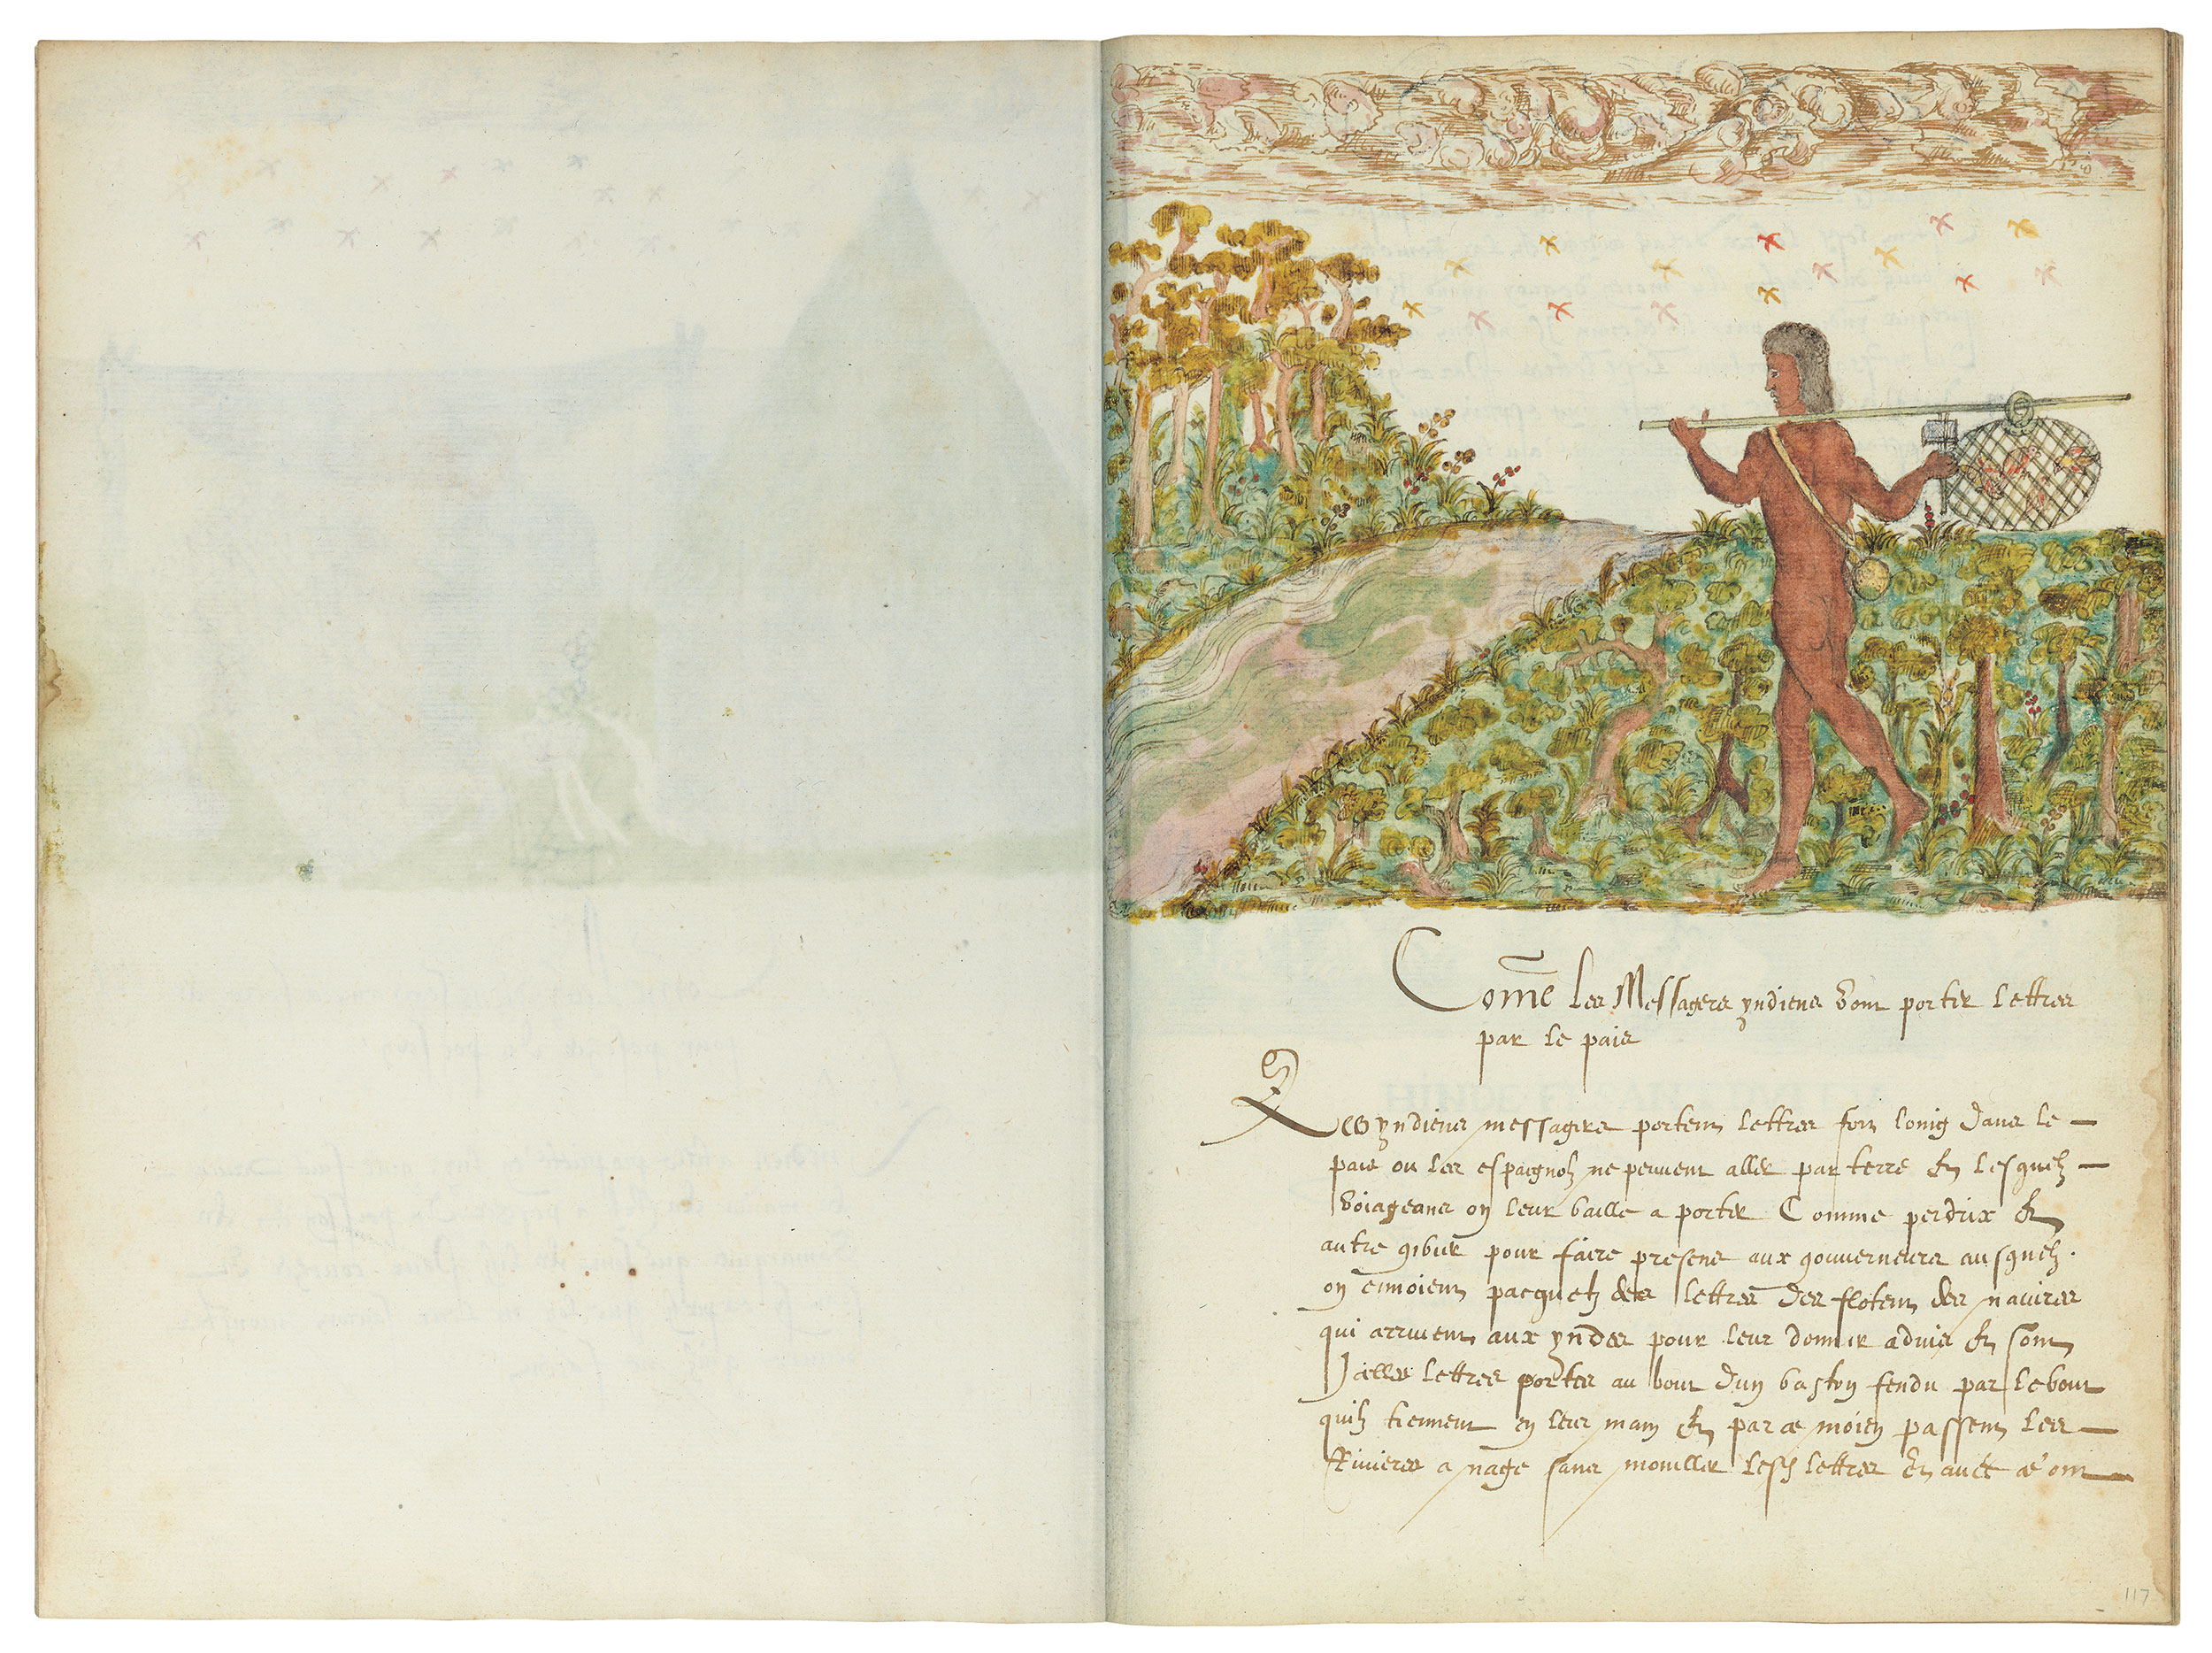 Comē les Messagers yndiens vont porter lettres
par le pais
Les yndiens messagers portent lettres fort loing dans le
pais ou les espaignolz ne peuvent aller par terre Et lesquelz
voiageans on leur baille a porter Comme perdrix Et
autre gibier pour faire presens aux gouverneurs ausquelz
on envoient pacquetz des lettres des flotes des navires
qui arrivent aux yndes pour leur donner advis Et sont
lettres portes au bout dun baston fendu par le bout
quilz tiennent en leur main Et par ce moien passent les
Rivieres a nage sans mouiller lesd lettres Et avec ce ont
117